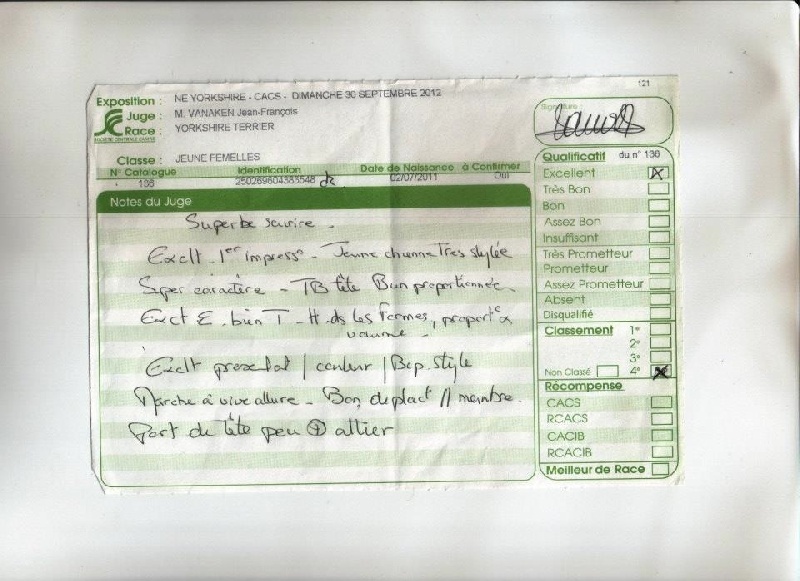 121
Exposition : NE YORKSHIRE - CACS - DIMANCHE 30 SEPTEMBRE 2012
Juge : M. VANAKEN Jean-François
Race : YORKSHIRE TERRIER
SOCIÉTÉ CENTRALE CANINE
Classe : JEUNE FEMELLES
N° Catalogue Identification Date de Naissance à Confirmer
02/07/2011 Oui
Notes du Juge
Superbe
Exclt. 1er impress° - Jeune chienne Très stylée
Super caractère - TB tête Bien proportionnée.
Exct E. bien T - H. ds les Formes, proport° &
volume.
Exclt | couleur | Bcp. style
Marche à vive allure - Bon deplact // membre.
Port de tête peu ⊕ altier
Signature :
Qualificatif du n° 130
Excellent X
Très Bon
Bon
Assez Bon
Insuffisant
Très Prometteur
Prometteur
Assez Prometteur
Absent
Disqualifié
Classement 1e
2e
3e
Non Classé 4e X
Récompense
CACS
RCACS
CACIB
RCACIB
Meilleur de Race